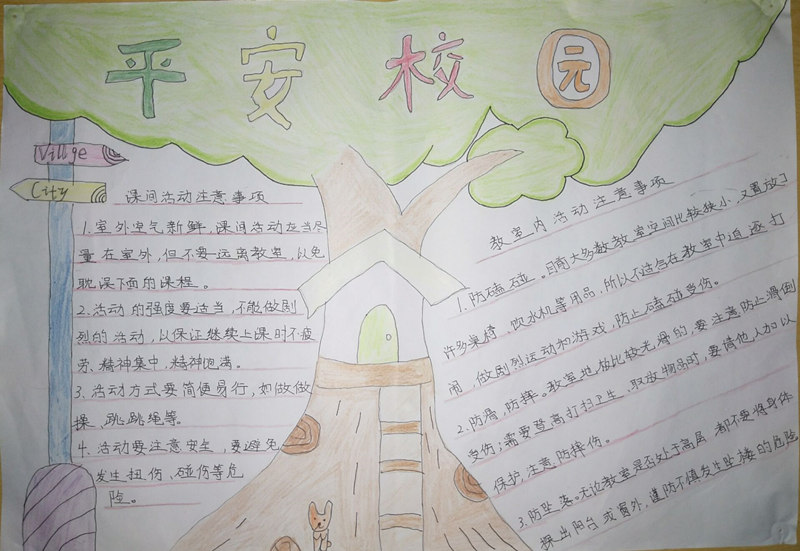 平安校园
Villge
City
课间活动注意事项
1.室外空气新鲜,课间活动应当尽
量在室外,但不要远离教室,以免
耽误下面的课程。
2.活动的强度要适当,不能做剧
烈的活动,以保证继续上课时不疲
劳、精神集中,精神饱满。
3、活动方式要简便易行,如做做
操、跳跳绳等。
4、活动要注意安全,要避免
发生扭伤、碰伤等危
险。
教室内活动注意事项
1.防磕碰。目前大多数教室空间比较狭小,又置放了
许多桌椅、饮水机等用品,所以不适合在教室中追逐打
闹,做剧烈运动和游戏,防止磕碰受伤。
2.防滑、防摔。教室地板比较光滑的,要注意防止滑倒
受伤;需要登高打扫卫生、取放物品时,要请他人加以
保护,注意防摔伤。
3.防坠落。无论教室是否处于高层,都不要将身体
探出阳台或窗外,谨防不慎发生坠楼的危险